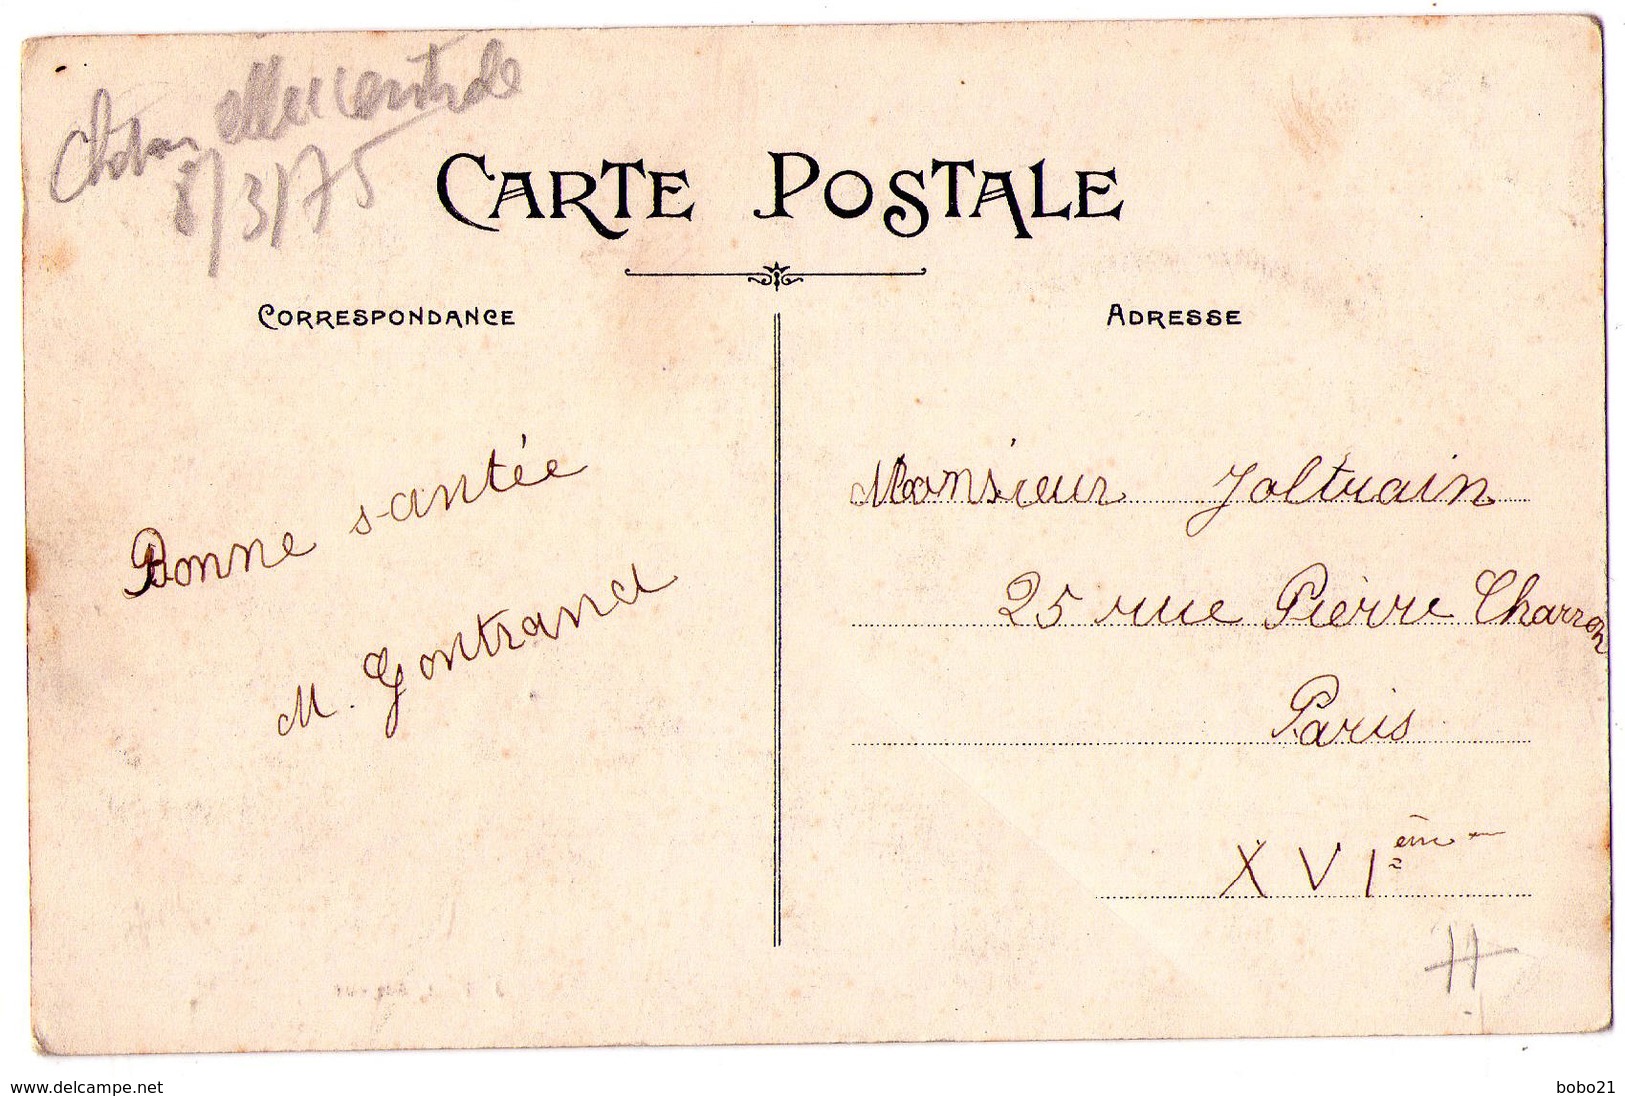 8/3/75
CARTE POSTALE
CORRESPONDANCE
ADRESSE
Bonne santée
M. Gontrand
Monsieur Joltrain
25 rue Pierre Charron
Paris
XVIème
www.delcampe.net
bobo21